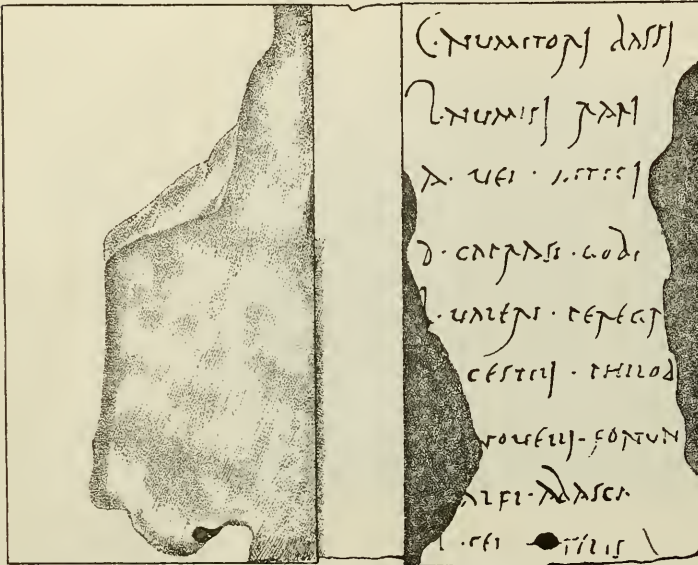 C · NUMITORI BASSI
L · NUMISI RARI
A · VEI · ATTICI
D · CAPRASI · GOBI
L · VALERI · PEREGR
CESTILI · PHILOD
NOVELLI · FORTUN
ALFI · ABASCA
CEI TILIS